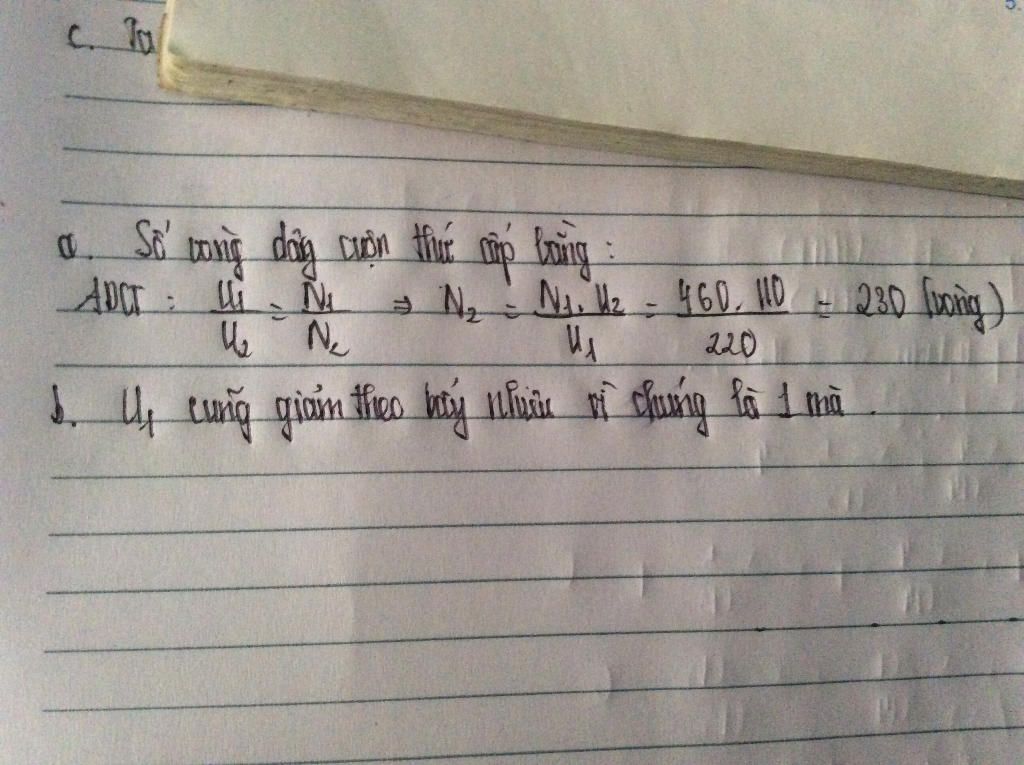 5.
c. Ta
a. Số vòng dây cuộn thứ cấp bằng :
ADCT : U₁/U₂ = N₁/N₂ ⇒ N₂ = N₁.U₂/U₁ = 460.110/220 = 230 (vòng)
b. U₁ cũng giảm theo bấy nhiêu vì chúng là 1 mà .